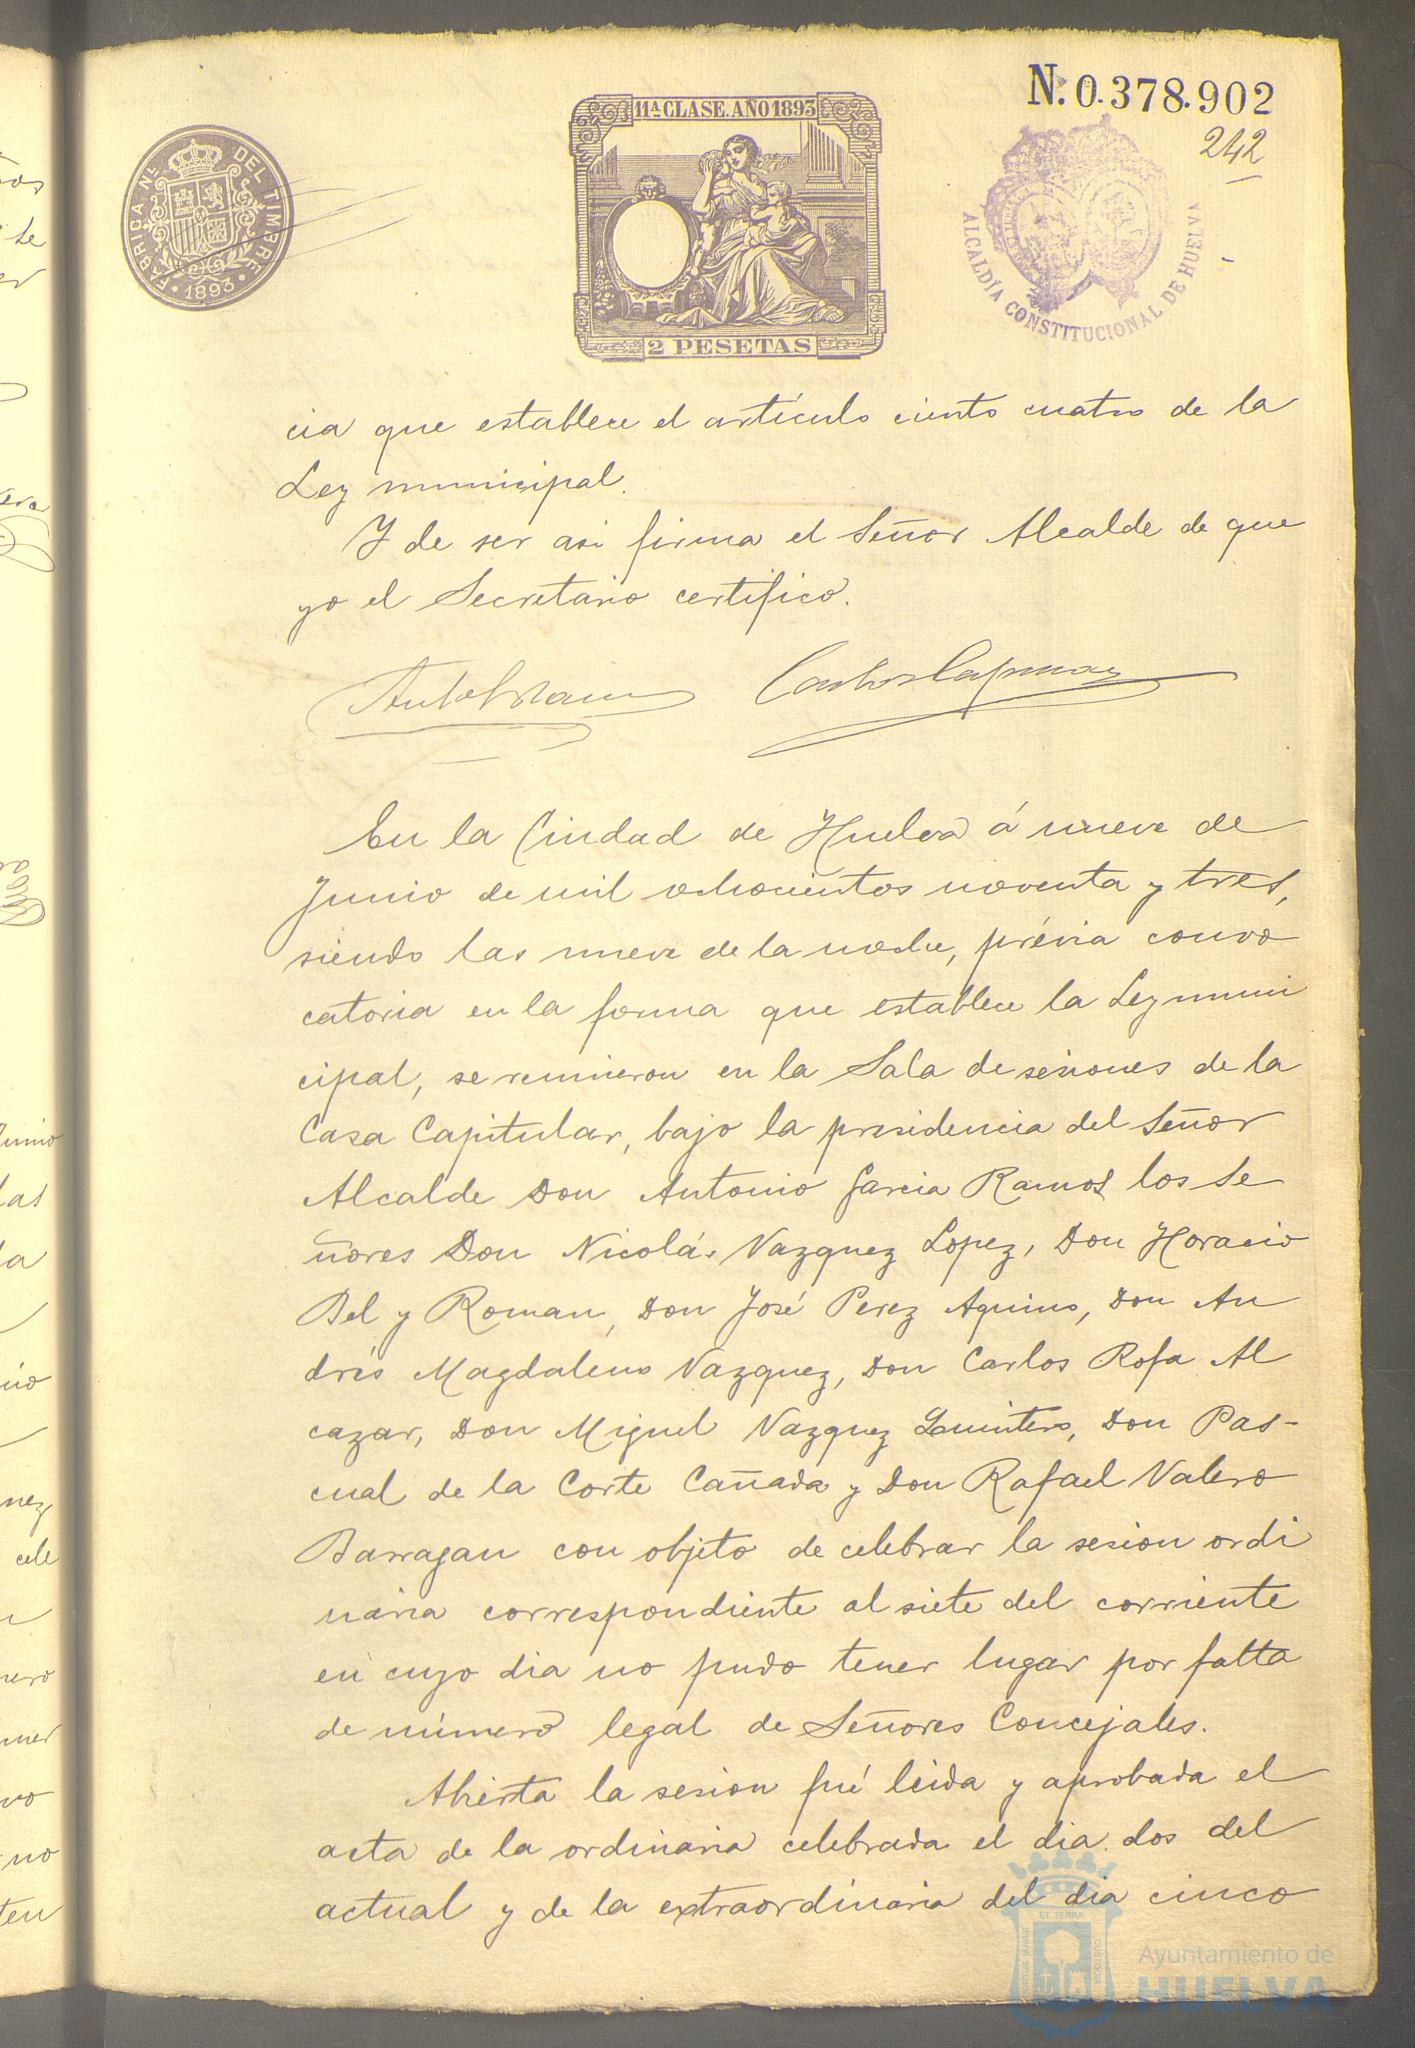 N. 0.378.902
242
11ª CLASE. AÑO 1893
FABRICA Nᴸ DEL TIMBRE
1893
2 PESETAS
ALCALDÍA CONSTITUCIONAL DE HUELVA
cia que establece el artículo ciento cuatro de la
Ley municipal.
Y de ser asi firma el Señor Alcalde de que
yo el Secretario certifico.
En la Ciudad de Huelva á nueve de
Junio de mil ochocientos noventa y tres,
siendo las nueve de la noche, prévia convo
catoria en la forma que establece la Ley muni
cipal, se reunieron en la Sala de sesiones de la
Casa Capitular, bajo la presidencia del Señor
Alcalde Don Antonio Garcia Ramos los Se
ñores Don Nicolás Vazquez Lopez, Don Horacio
Bel y Roman, Don José Perez Aquino, Don An
drés Magdaleno Vazquez, Don Carlos Rofa Al
cazar, Don Miguel Vazquez Quintero, Don Pas-
cual de la Corte Cañada y Don Rafael Valero
Barragan con objeto de celebrar la sesion ordi
naria correspondiente al siete del corriente
en cuyo dia no pudo tener lugar por falta
de número legal de Señores Concejales.
Abierta la sesion fué leida y aprobada el
acta de la ordinaria celebrada el dia dos del
actual y de la extraordinaria del dia cinco
Ayuntamiento de
HUELVA